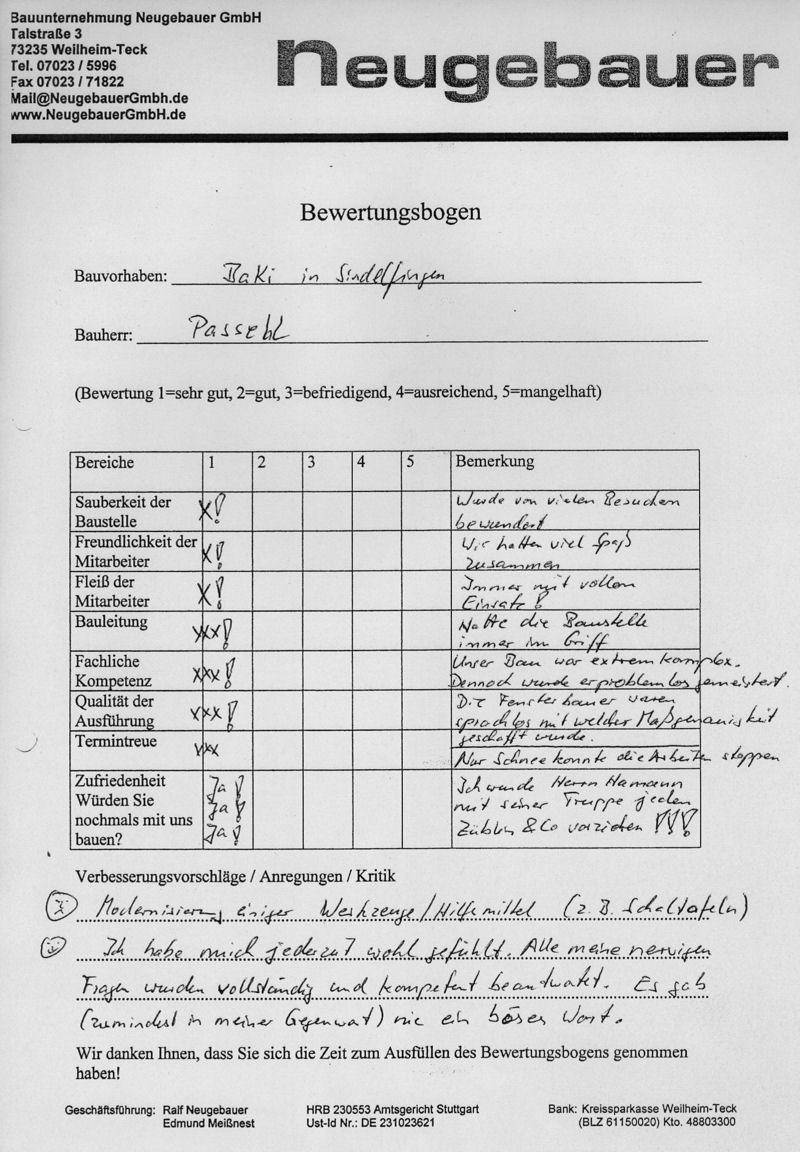 Bauunternehmung Neugebauer GmbH
Talstraße 3
73235 Weilheim-Teck
Tel. 07023 / 5996
Fax 07023 / 71822
Mail@NeugebauerGmbh.de
www.NeugebauerGmbH.de
Neugebauer
Bewertungsbogen
Bauvorhaben: BaKi in Sindelfingen
Bauherr: Passehl
(Bewertung 1=sehr gut, 2=gut, 3=befriedigend, 4=ausreichend, 5=mangelhaft)
Bereiche 1 2 3 4 5 Bemerkung
Sauberkeit der Baustelle X! Wurde von vielen Besuchern
bewundert
Freundlichkeit der Mitarbeiter X! Wir hatten viel Spaß
zusammen
Fleiß der Mitarbeiter X! Immer mit vollem
Einsatz!
Bauleitung XXX! Hatte die Baustelle
immer im Griff
Fachliche Kompetenz XXX! Unser Bau war extrem komplex.
Dennoch wurde er problemlos gemeistert.
Qualität der Ausführung XXX! Die Fensterbauer waren
sprachlos mit welcher Maßgenauigkeit
geschafft wurde.
Termintreue XXX Nur Schnee konnte die Arbeiten stoppen
Zufriedenheit Ja! Ich würde Herrn Hamann
Würden Sie Ja! mit seiner Truppe jedem
nochmals mit uns bauen? Ja! Züblin & Co vorziehen !!!
Verbesserungsvorschläge / Anregungen / Kritik
Modernisierung einiger Werkzeuge/Hilfsmittel (z.B. Schaltafeln)
Ich habe mich jederzeit wohl gefühlt. Alle meine nervigen
Fragen wurden vollständig und kompetent beantwortet. Es gab
(zumindest in meiner Gegenwart) nie ein böses Wort.
Wir danken Ihnen, dass Sie sich die Zeit zum Ausfüllen des Bewertungsbogens genommen
haben!
Geschäftsführung: Ralf Neugebauer
Edmund Meißnest
HRB 230553 Amtsgericht Stuttgart
Ust-Id Nr.: DE 231023621
Bank: Kreissparkasse Weilheim-Teck
(BLZ 61150020) Kto. 48803300